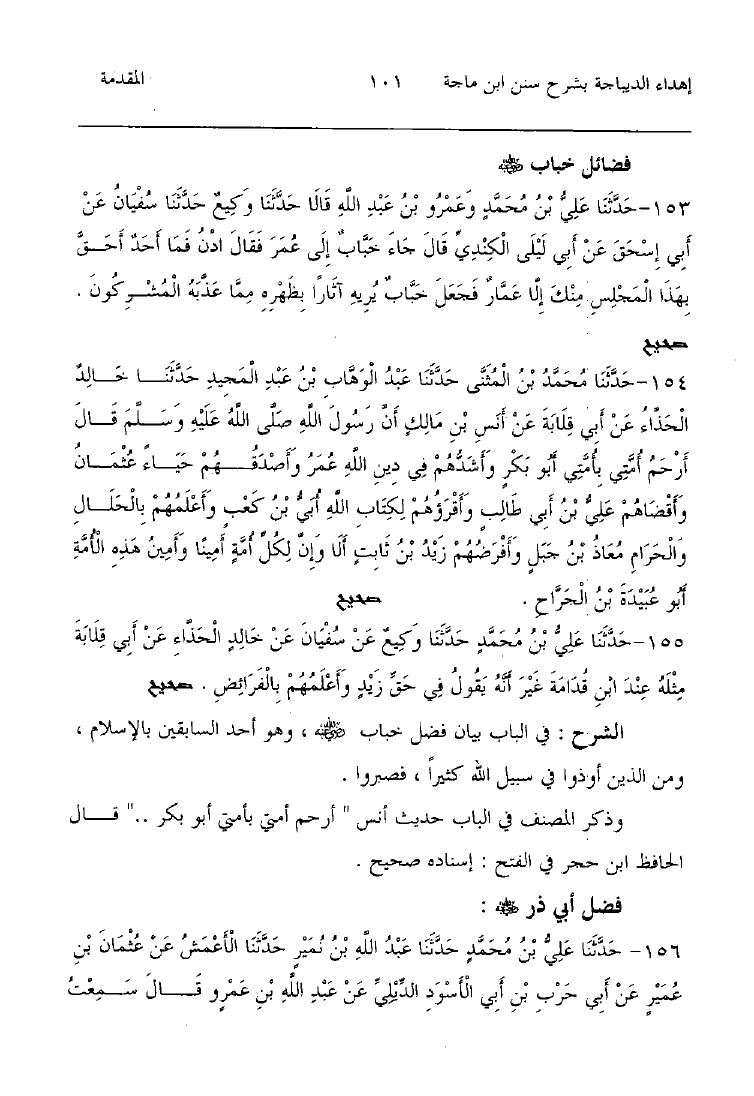 إهداء الديباجة بشرح سنن ابن ماجة ١٠١ المقدمة
فضائل خباب ﷺ
١٥٣-حَدَّثَنَا عَلِيُّ بْنُ مُحَمَّدٍ وَعَمْرُو بْنُ عَبْدِ اللَّهِ قَالَا حَدَّثَنَا وَكِيعٌ حَدَّثَنَا سُفْيَانُ عَنْ
أَبِي إِسْحَقَ عَنْ أَبِي لَيْلَى الْكِنْدِيِّ قَالَ جَاءَ خَبَّابٌ إِلَى عُمَرَ فَقَالَ ادْنُ فَمَا أَحَدٌ أَحَقَّ
بِهَذَا الْمَجْلِسِ مِنْكَ إِلَّا عَمَّارٌ فَجَعَلَ خَبَّابٌ يُرِيهِ آثَارًا بِظَهْرِهِ مِمَّا عَذَّبَهُ الْمُشْرِكُونَ .
صحيح
١٥٤-حَدَّثَنَا مُحَمَّدُ بْنُ الْمُثَنَّى حَدَّثَنَا عَبْدُ الْوَهَّابِ بْنُ عَبْدِ الْمَجِيدِ حَدَّثَنَا خَالِدٌ
الْحَذَّاءُ عَنْ أَبِي قِلَابَةَ عَنْ أَنَسِ بْنِ مَالِكٍ أَنَّ رَسُولَ اللَّهِ صَلَّى اللَّهُ عَلَيْهِ وَسَلَّمَ قَالَ
أَرْحَمُ أُمَّتِي بِأُمَّتِي أَبُو بَكْرٍ وَأَشَدُّهُمْ فِي دِينِ اللَّهِ عُمَرُ وَأَصْدَقُهُمْ حَيَاءً عُثْمَانُ
وَأَقْضَاهُمْ عَلِيُّ بْنُ أَبِي طَالِبٍ وَأَقْرَؤُهُمْ لِكِتَابِ اللَّهِ أُبَيُّ بْنُ كَعْبٍ وَأَعْلَمُهُمْ بِالْحَلَالِ
وَالْحَرَامِ مُعَاذُ بْنُ جَبَلٍ وَأَفْرَضُهُمْ زَيْدُ بْنُ ثَابِتٍ أَلَا وَإِنَّ لِكُلِّ أُمَّةٍ أَمِينًا وَأَمِينُ هَذِهِ الْأُمَّةِ
أَبُو عُبَيْدَةَ بْنُ الْجَرَّاحِ . صحيح
١٥٥-حَدَّثَنَا عَلِيُّ بْنُ مُحَمَّدٍ حَدَّثَنَا وَكِيعٌ عَنْ سُفْيَانَ عَنْ خَالِدٍ الْحَذَّاءِ عَنْ أَبِي قِلَابَةَ
مِثْلَهُ عِنْدَ ابْنِ قُدَامَةَ غَيْرَ أَنَّهُ يَقُولُ فِي حَقِّ زَيْدٍ وَأَعْلَمُهُمْ بِالْفَرَائِضِ . صحيح
الشرح : في الباب بيان فضل خباب ﷺ ، وهو أحد السابقين بالإسلام ،
ومن الذين أوذوا في سبيل الله كثيراً ، فصبروا .
وذكر المصنف في الباب حديث أنس " أرحم أمتي بأمتي أبو بكر .." قال
الحافظ ابن حجر في الفتح : إسناده صحيح .
فضل أبي ذر ﷺ :
١٥٦- حَدَّثَنَا عَلِيُّ بْنُ مُحَمَّدٍ حَدَّثَنَا عَبْدُ اللَّهِ بْنُ نُمَيْرٍ حَدَّثَنَا الْأَعْمَشُ عَنْ عُثْمَانَ بْنِ
عُمَيْرٍ عَنْ أَبِي حَرْبِ بْنِ أَبِي الْأَسْوَدِ الدِّيلِيِّ عَنْ عَبْدِ اللَّهِ بْنِ عَمْرٍو قَالَ سَمِعْتُ